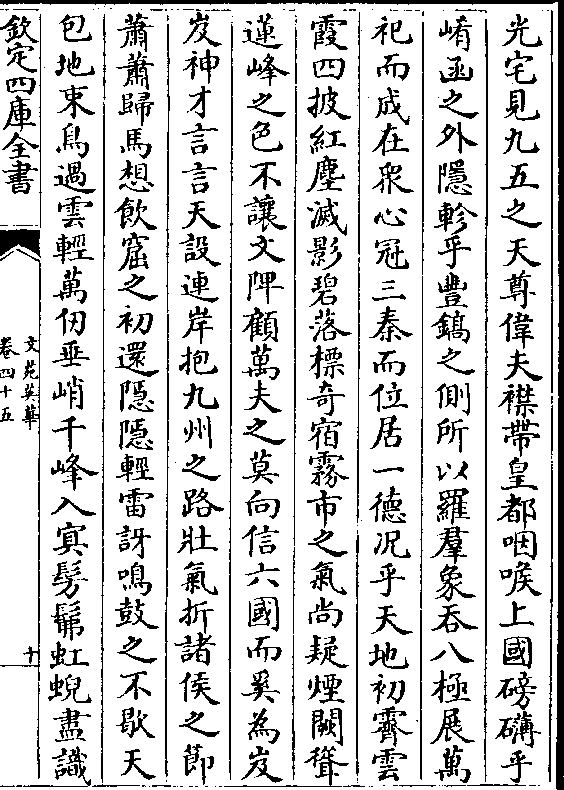 光宅見九五之天尊偉夫襟帶皇都咽喉上國磅礴乎
崤函之外隱軫乎豐鎬之側所以羅羣象吞八極展萬
祀而成在衆心冠三秦而位居一德况乎天地初霽雲
霞四披紅塵滅影碧落標奇宿霧市之氣尚疑煙闕聳
蓮峰之色不讓文陴顧萬夫之莫向信六國而奚為岌
岌神才言言天設連岸抱九州之路壯氣折諸侯之節
蕭蕭歸馬想飲窟之初還隱隱輕雷訝鳴鼓之不歇天
包地束鳥過雲輕萬仞垂峭千峰入寘髣髴虹蜺盡識
欽定四庫全書
文苑英華
卷四十五
十